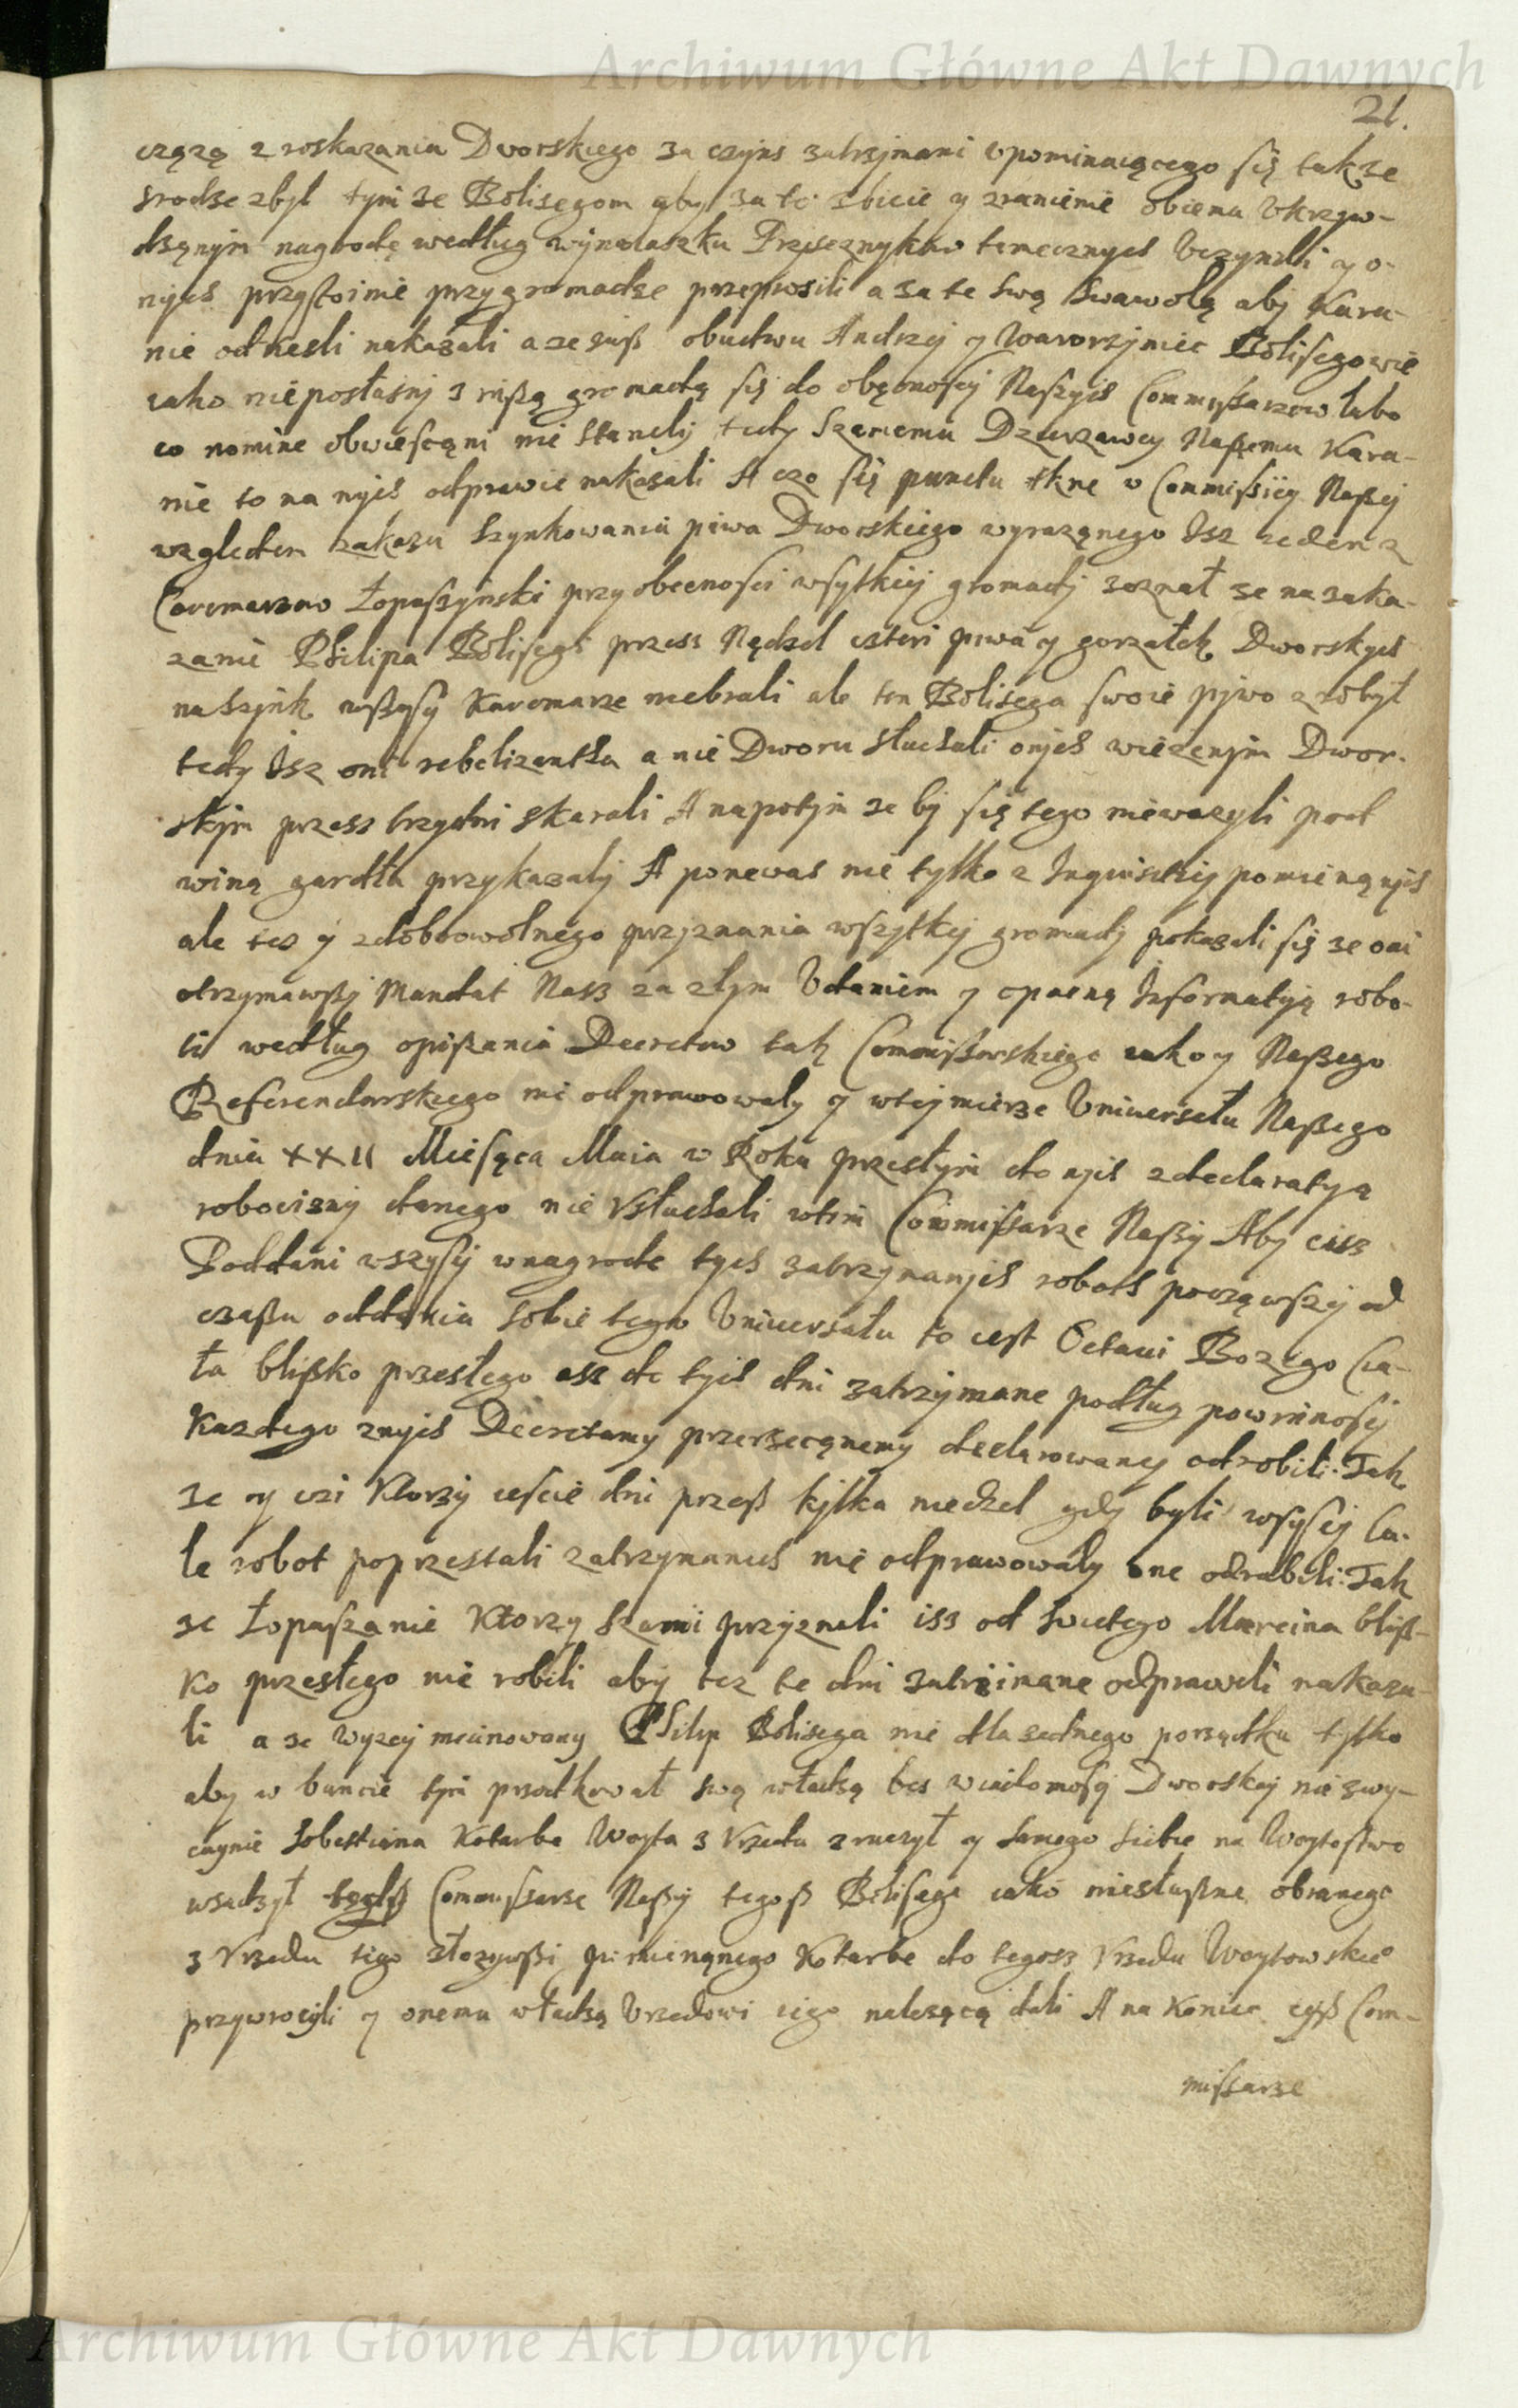 Archiwum Główne Akt Dawnych
21.
czązą z roskazania Dworskiego za czÿns zatrzÿmani vpominaiącego się takze
srodze zbyl tym ze Bolisegom aby za to zbicie y zranienie obiema Vkrzyw-
dząnÿm nagrodę według wÿnalaszku Przisęznykow tamecznych Vczynili y o-
nÿch przÿstoinie przÿ gromadze przeprosili a za te swą swawolą abÿ kara-
nie odniesli nakazali a ze iusz obudwu Andrzÿ y Wawrzÿniec Bolisegowie
iako nieposłusznÿ z inszą gromadą się do obęcnoscÿ Naszÿch Commissarzow lubo
eo nomine obwiescąni nie stanelÿ tedy szamemu Dzierzawcy Naszemu Kara-
nie to na nÿch odprawic nakazali A czo się punctu tkne w Commissÿey Naszeÿ
względem zakazu szynkowania piwa Dworskiego wyrazonego Isz ieden z
Carcmarzow Łopaszÿnski przy obecnosci wsytkieÿ gromadÿ zoznał ze na zaka-
zanie Philipa Bolisegi przesz Nędzel czteri piwa y gorzałek Dworskych
na szÿnk wszÿsÿ Karcmarze niebrali ale ten Bolisega swoie pÿwo zrobÿł
tedy Isz oni rebelizantha a nie Dworu sluchali onÿch wiezenÿm Dwor-
skÿm przesz trzy dni skarali A napotÿm ze bÿ się tego niewazyli pod
winą gardła przykazalÿ A poniewas nie tylko z Inquisitiÿ pomienąnÿch
ale tez ÿ z dobrowolnego przÿznania wszytkeÿ gromadÿ pokazali się ze oni
otrzymawszÿ Mandat Nasz za złym Vdaniem y opaczną Informatÿą robo-
ti według opiszania Decretow tak Commissarskiego iako y Naszego
Referendarskiego nie odprawowaly y wteÿ mierze Vniuersału Naszego
dnia XXII Miesąca Maia w Roku przeslym do nÿch z declaratÿą
robociznÿ danego nie Vsłuchali wtim Commissarze Naszÿ Aby ciisz
Poddani wszyscÿ w nagrode tych zatrzÿmanÿch roboth począwszÿ od
czaszu oddania sobie tego Vniuersału to iest Octawi Bozego Cia-
ła bliszko przeslego asz do tÿch dni zatrzÿmane podług powinnoscÿ
Kazdego z nÿch Decretamy przerzeconemy declarowaneÿ odrobili: Tak
ze y czi Ktorzÿ iescie dni przesz kÿlka niedzel gdÿ byli wsyscÿ ca-
le robot poprzestali zatrzymanich nie odprawowaly one odrabili: Tak
ze Łopuszanie Ktorzy szami przÿznali isz od swietego Marcina blisz-
ko przeslego nie robili abÿ tez te dni zatrzimane odprawili nakaza-
li a ze wyzeÿ mianowany Philip Bolisega nie dla zadnego porządku tylko
aby w buncie tÿm przodkował swą władzą bes wiadomoscÿ Dworskeÿ nie zwy-
caynie Sobestiana Kotarbe Woyta z Vrzedu zruczył y samego siebie na Woytostwo
wsadzył Commissarze Naszÿ tegosz Bolisege iako niesłusznie obranego
z Vrzedu tego złozywszi pomienąnego Kotarbe do tegosz Vrzedu Woytowskie°
przywrocyli y onemu władzą Vrzedowi iego nalezącą dali A na Koniec cysz Com-
missarze
Archiwum Główne Akt Dawnych